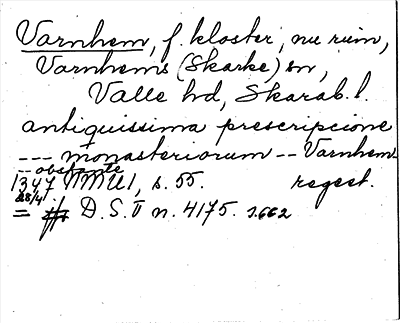 Varnhem, f. kloster, nu ruin,
Varnhems (Skarke) sn,
Valle hd, Skarab. l.
antiquissima prescripcione
--- monasteriorum -- Varnhem
-- obstante
1347 NMU1, s. 55. regest.
28/4
= D.S. V n. 4175. s. 662